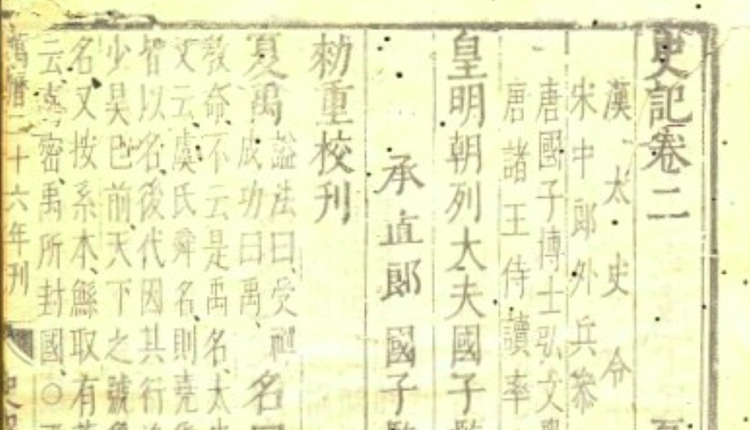 史記卷二
漢太史令
宋中郎外兵
唐國子博士弘文
唐諸王侍讀率
皇明朝列大夫國子
承直郎國子
勑重校刊
夏禹
謚法曰受禪
成功曰禹名
教命不云是禹名太
文云虞氏舜名則堯
皆以名後代因其行
少昊已前天下之號
名又按系本鯀取有
云密禹所封國○
二十六年刊